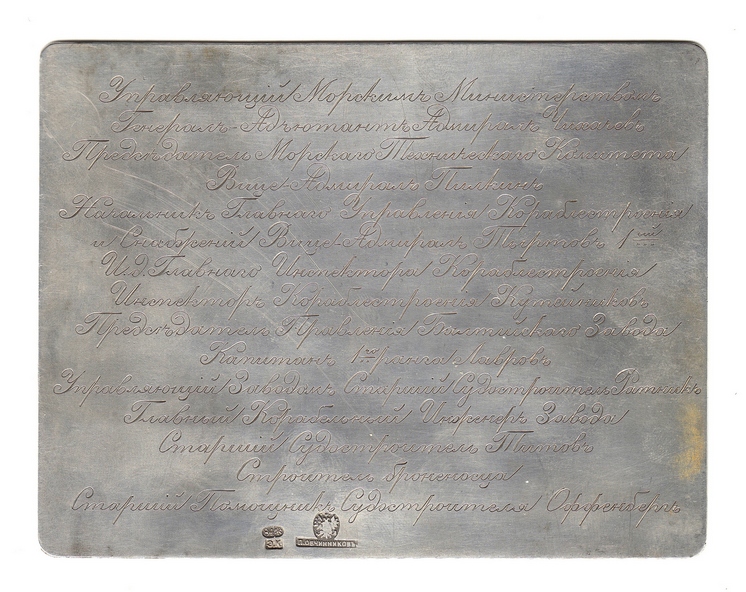 Управляющій Морскимъ Министерствомъ
Генералъ-Адъютантъ Адмиралъ Чихачевъ
Предсѣдатель Морскаго Техническаго Комитета
Вице-Адмиралъ Пилкинъ
Начальникъ Главнаго Управленія Кораблестроенія
и Снабженій Вице-Адмиралъ Тыртовъ 1ый
И.д. Главнаго Инспектора Кораблестроенія
Инспекторъ Кораблестроенія Кутейниковъ
Предсѣдатель Правленія Балтійскаго Завода
Капитанъ 1го ранга Лавровъ
Управляющій Заводомъ Старшій Судостроитель Ратникъ
Главный Корабельный Инженеръ Завода
Старшій Судостроитель Титовъ
Строитель броненосца
Старшій Помощникъ Судостроителя Оффенбергъ
П.ОВЧИННИКОВЪ